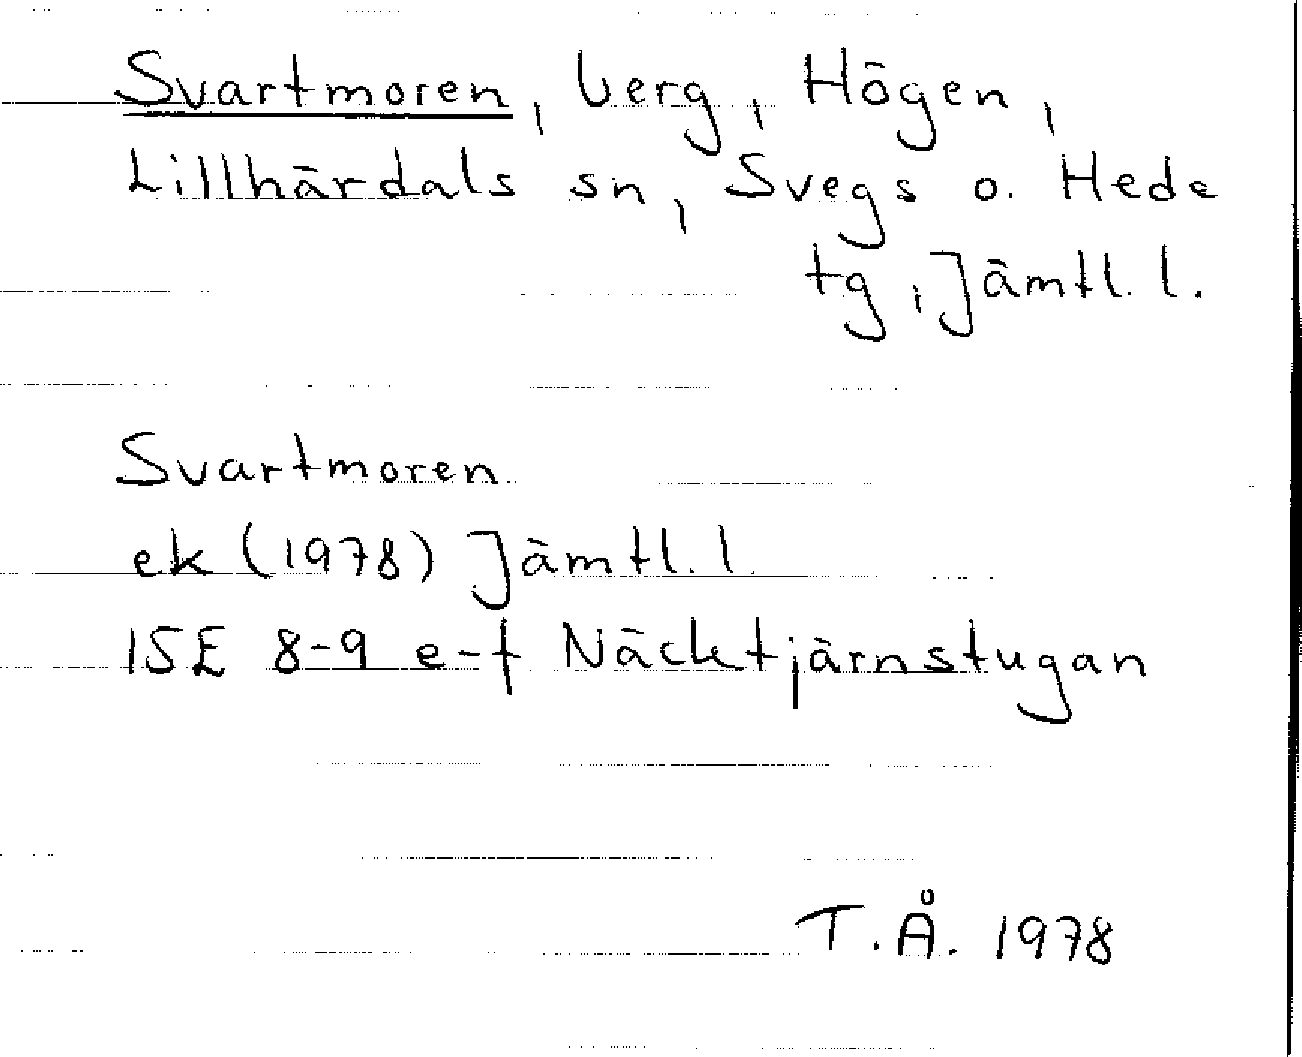 Svartmoren, berg, Högen,
Lillhärdals sn, Svegs o. Hede
tg, Jämtl. l.
Svartmoren
ek (1978) Jämtl. l.
15E 8-9 e-f Näcktjärnstugan
T.Å. 1978